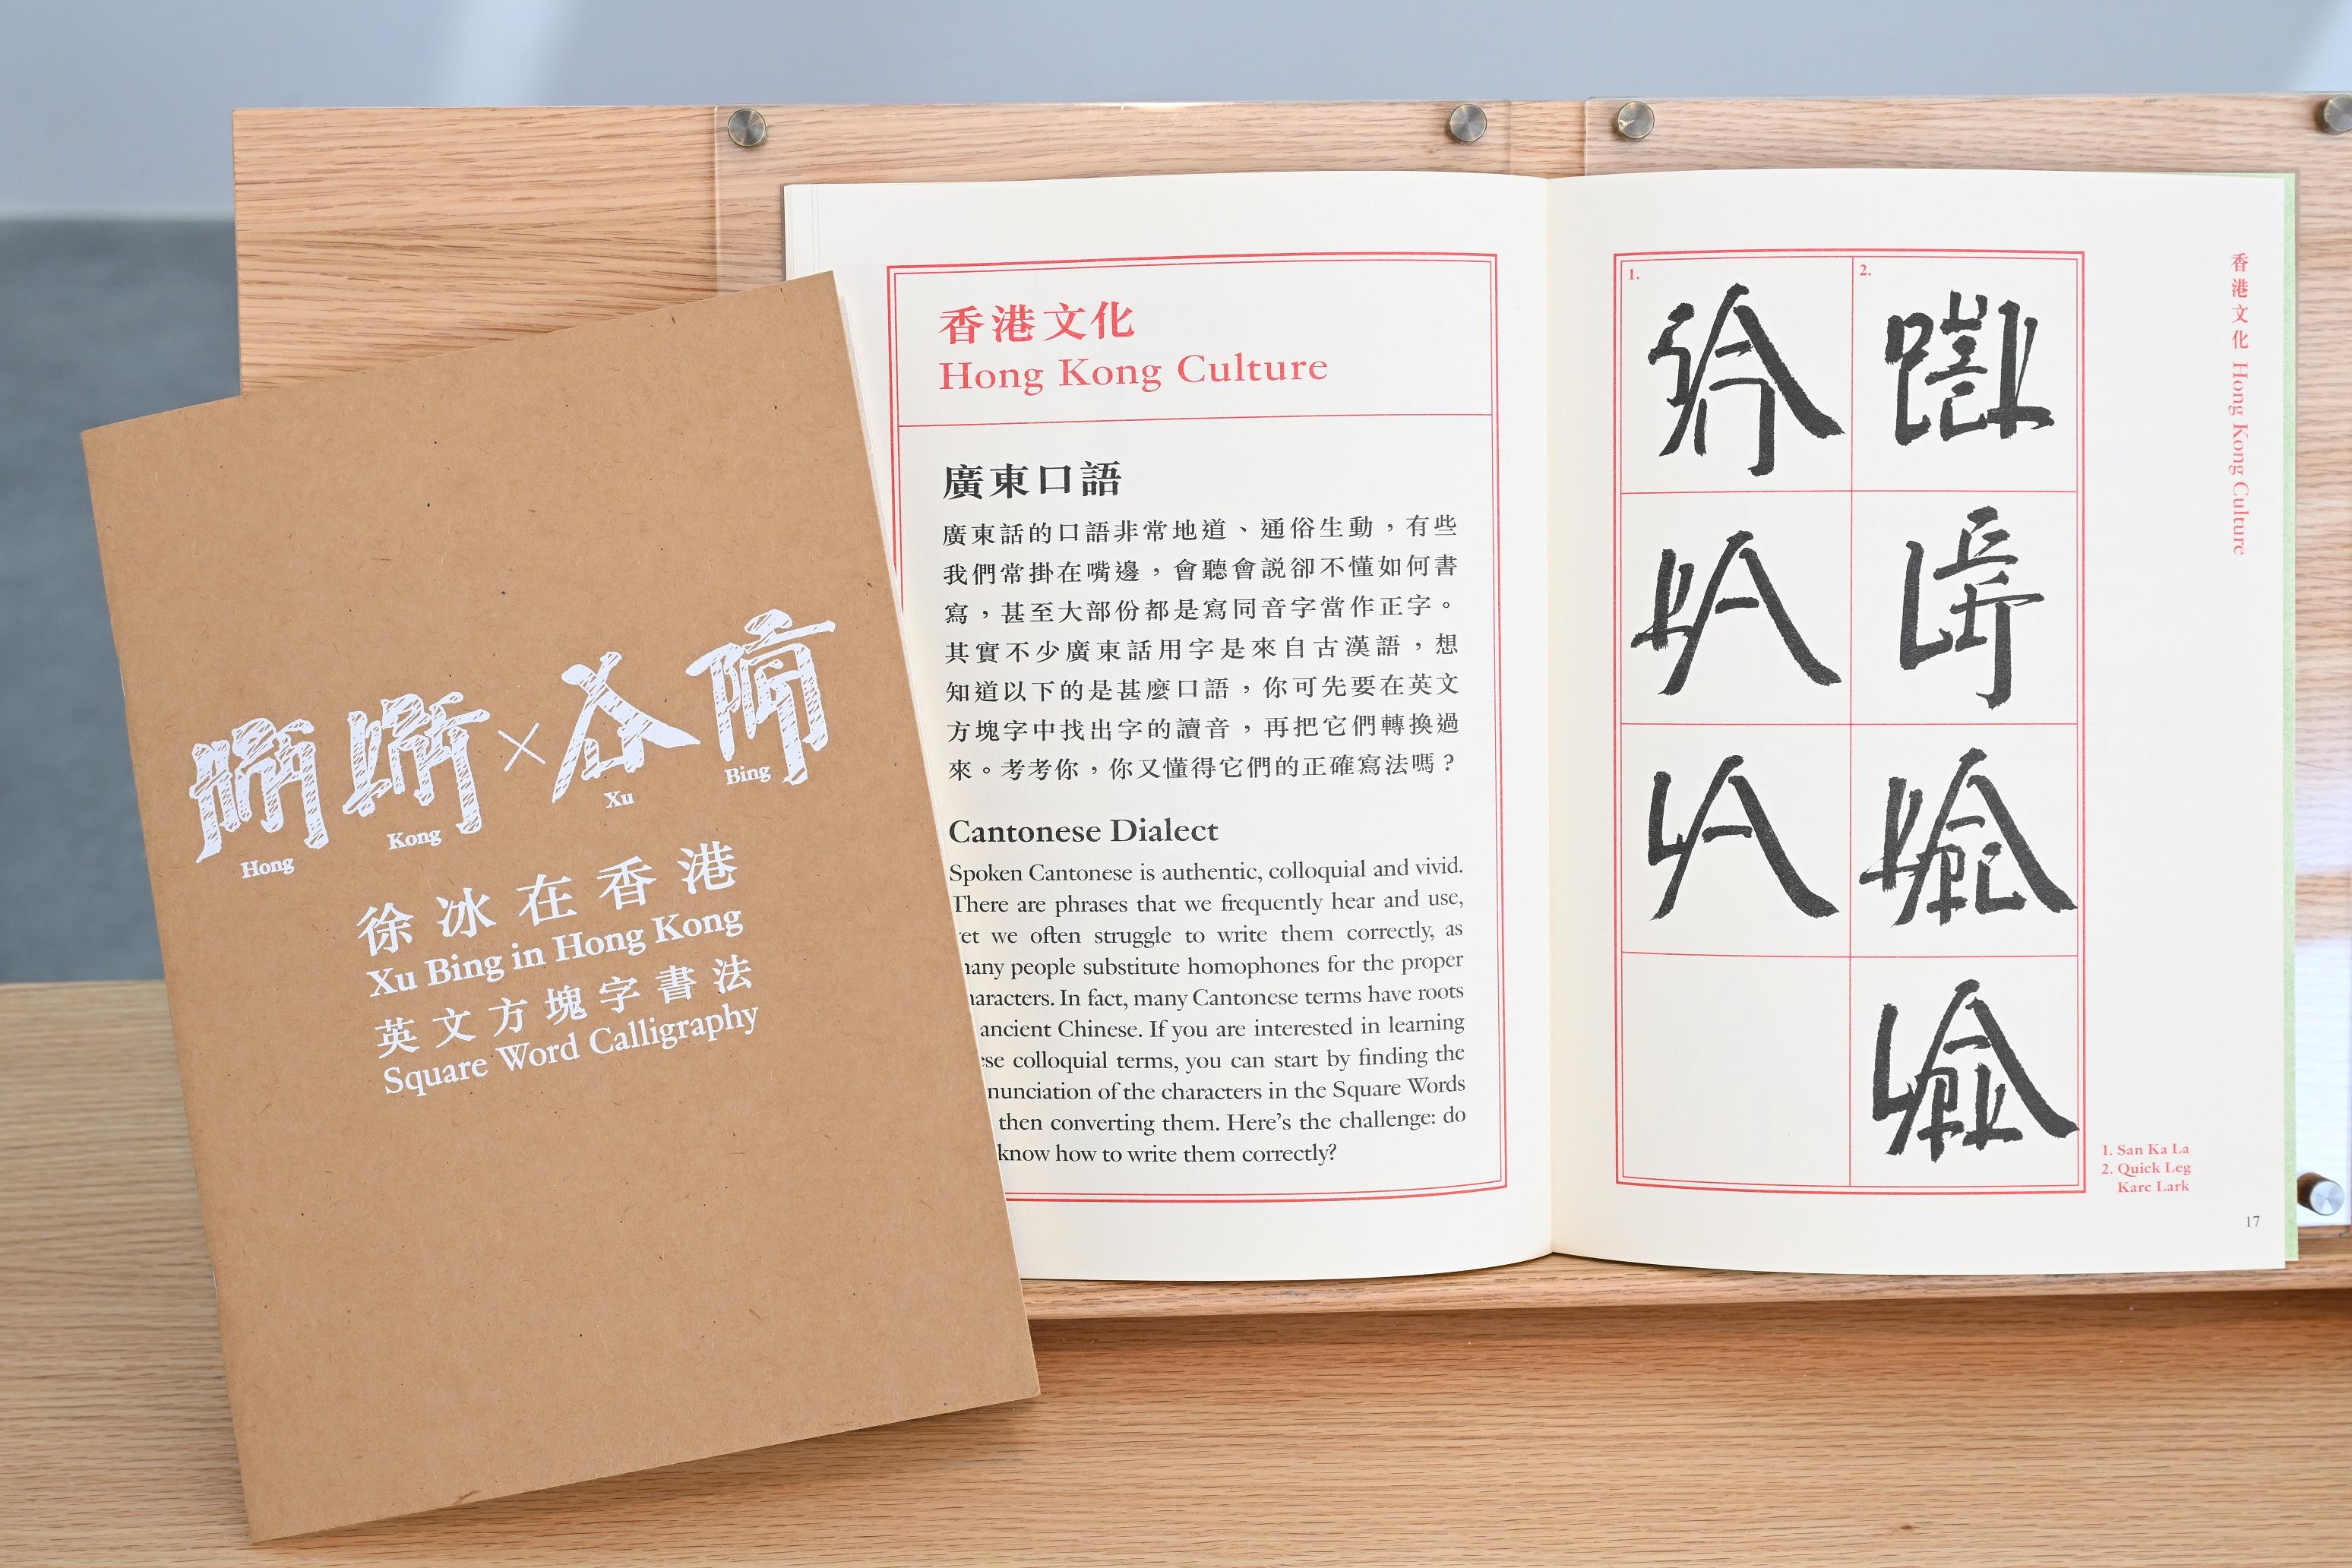 Hong Kong × Xu Bing
Hong Kong Xu Bing
徐冰在香港
Xu Bing in Hong Kong
英文方塊字書法
Square Word Calligraphy
香港文化
Hong Kong Culture
廣東口語
廣東話的口語非常地道、通俗生動，有些
我們常掛在嘴邊，會聽會説卻不懂如何書
寫，甚至大部份都是寫同音字當作正字。
其實不少廣東話用字是來自古漢語，想
知道以下的是甚麼口語，你可先要在英文
方塊字中找出字的讀音，再把它們轉換過
來。考考你，你又懂得它們的正確寫法嗎？
Cantonese Dialect
Spoken Cantonese is authentic, colloquial and vivid.
There are phrases that we frequently hear and use,
yet we often struggle to write them correctly, as
many people substitute homophones for the proper
characters. In fact, many Cantonese terms have roots
ancient Chinese. If you are interested in learning
these colloquial terms, you can start by finding the
pronunciation of the characters in the Square Words
then converting them. Here's the challenge: do
know how to write them correctly?
1.
San
Ka
La
2.
Quick
Leg
Karc
Lark
香港文化 Hong Kong Culture
1. San Ka La
2. Quick Leg
Karc Lark
17